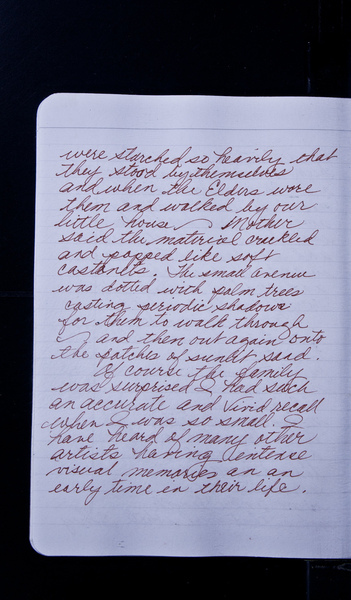 were starched so heavily that
they stood by themselves
and when the Elders wore
them and walked by our
little house Mother
said the material crackled
and popped like soft
castanets. The small avenue
was dotted with palm trees
casting periodic shadows
for them to walk through
and then out again onto
the patches of sunlit sand.
Of course the family
was surprised I had such
an accurate and vivid recall
when I was so small. I
have heard of many other
artists having intense
visual memories an an
early time in their life.